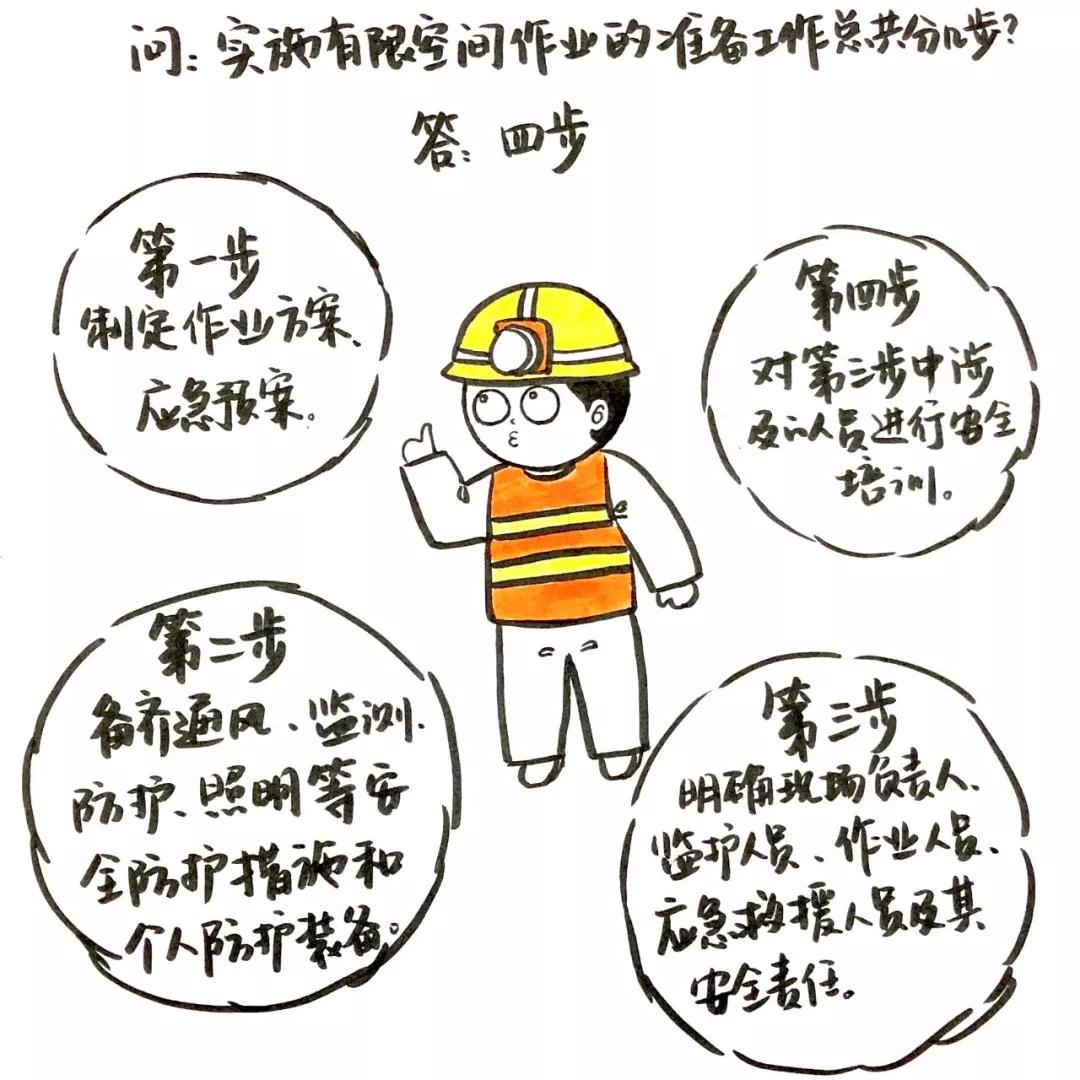 问：实施有限空间作业的准备工作总共分几步？
答：四步
第一步
制定作业方案、
应急预案。
第二步
备齐通风、监测、
防护、照明等安
全防护措施和
个人防护装备。
第三步
明确现场负责人、
监护人员、作业人员、
应急救援人员及其
安全责任。
第四步
对第三步中涉
及的人员进行安全
培训。